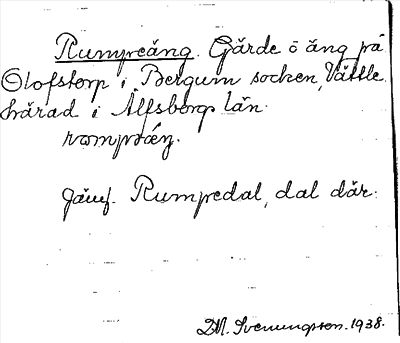 Rumpeäng. Gärde o äng på
Olofstorp i Bergum socken, Vättle
härad i Älfsborgs län.
Jämf. Rumpedal, dal där.
D.M. Svenungsson. 1938.